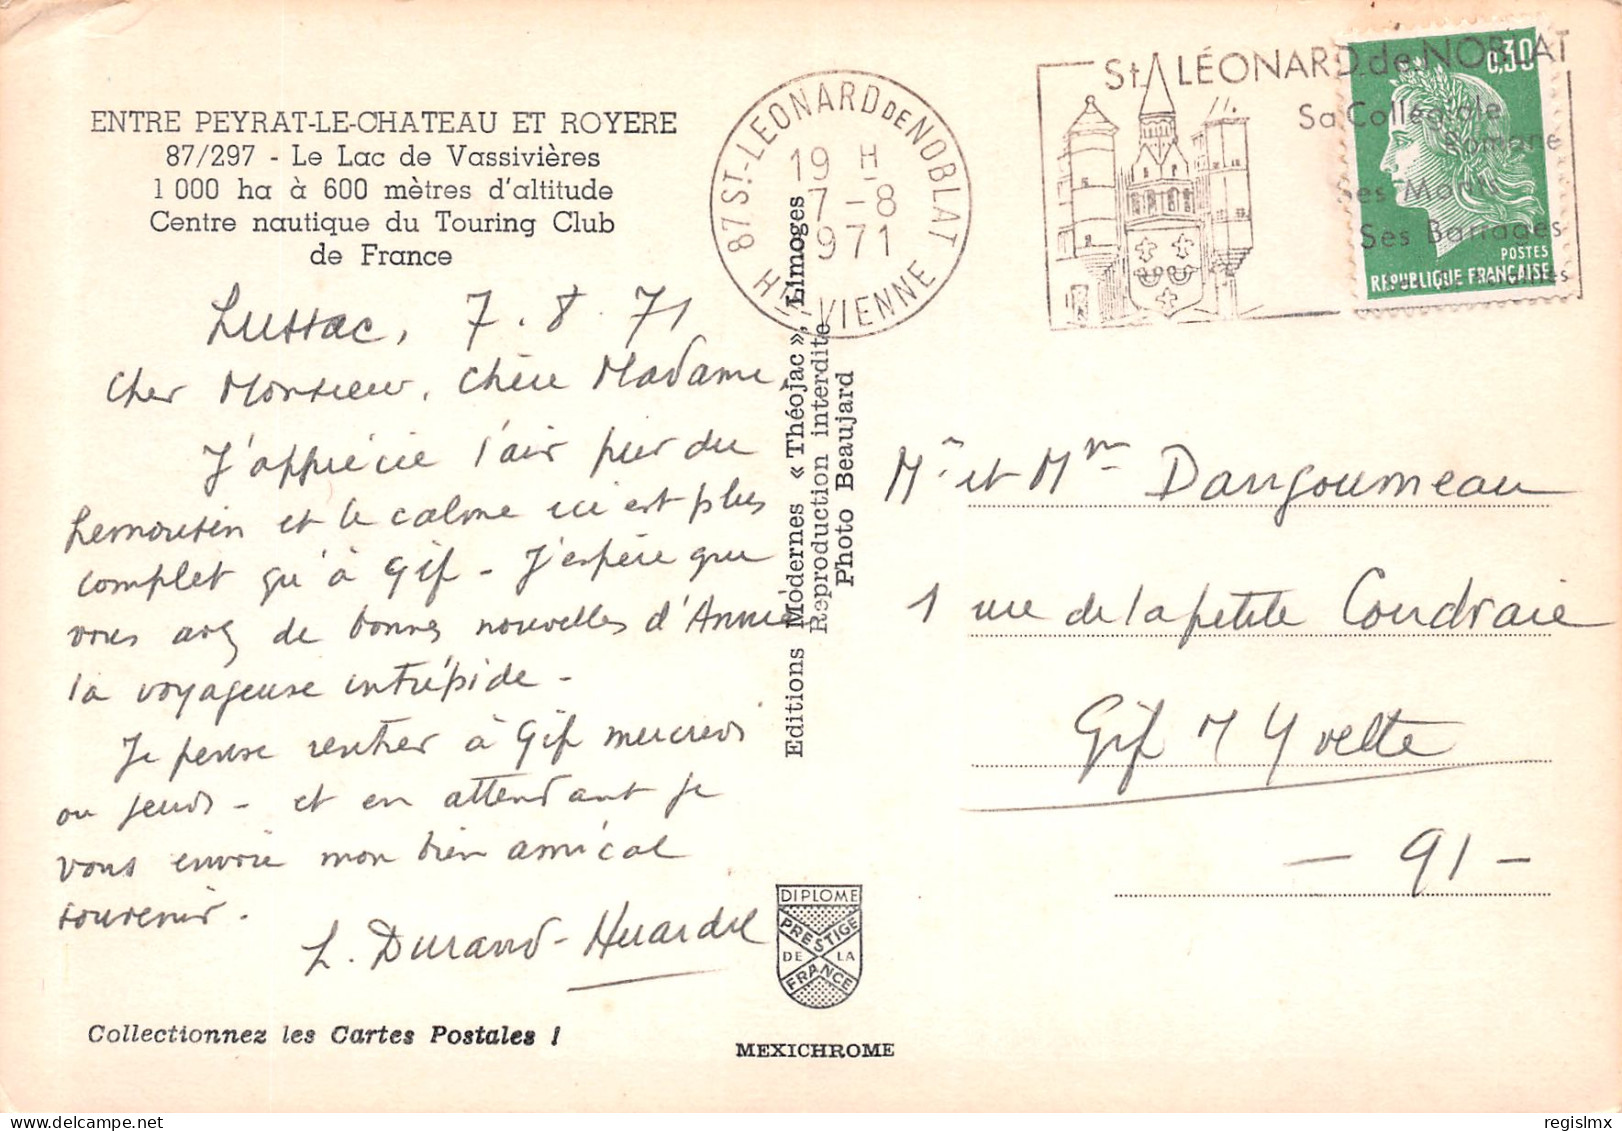 ENTRE PEYRAT-LE-CHATEAU ET ROYERE
87/297 - Le Lac de Vassivières
1 000 ha à 600 mètres d'altitude
Centre nautique du Touring Club
de France
Lussac, 7.8.71
Cher Monsieur, Chère Madame,
J'apprécie l'air pur du
Limousin et le calme ici est plus
complet qu'à Gif - J'espère que
vous avez de bonnes nouvelles d'Annie
la voyageuse intrépide -
Je pense rentrer à Gif mercredi
ou jeudi - et en attendant je
vous envoie mon bien amical
souvenir.
L. Durand-
Collectionnez les Cartes Postales !
Editions Modernes « Théojac », Limoges
Reproduction interdite
Photo Beaujard
DIPLOME
PRESTIGE
DE LA
FRANCE
MEXICHROME
87 ST-LEONARD DE NOBLAT
19 H
7-8
1971
HTE VIENNE
St LÉONARD de NOBLAT
Sa Collégiale
Romane
Ses Monts
Ses Barrages
0,30
POSTES
REPUBLIQUE FRANÇAISE
Mr et Mme Dangoumeau
1 rue de la petite Coudraie
Gif s/ Yvette
- 91 -
regislmx